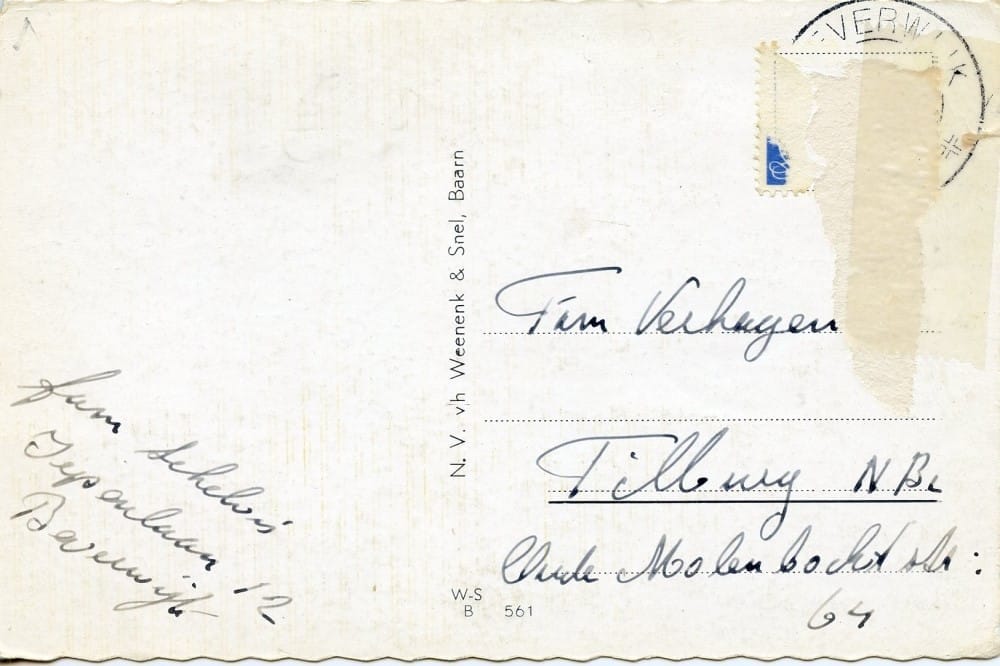 EVERWIJK
N. V. v/h Weenenk & Snel, Baarn
Fam Verhagen
Tilburg N Br
Oude Molenbochtstr:
64
fam Schelvis
Iepenlaan 12
Beverwijk
W-S
B 561